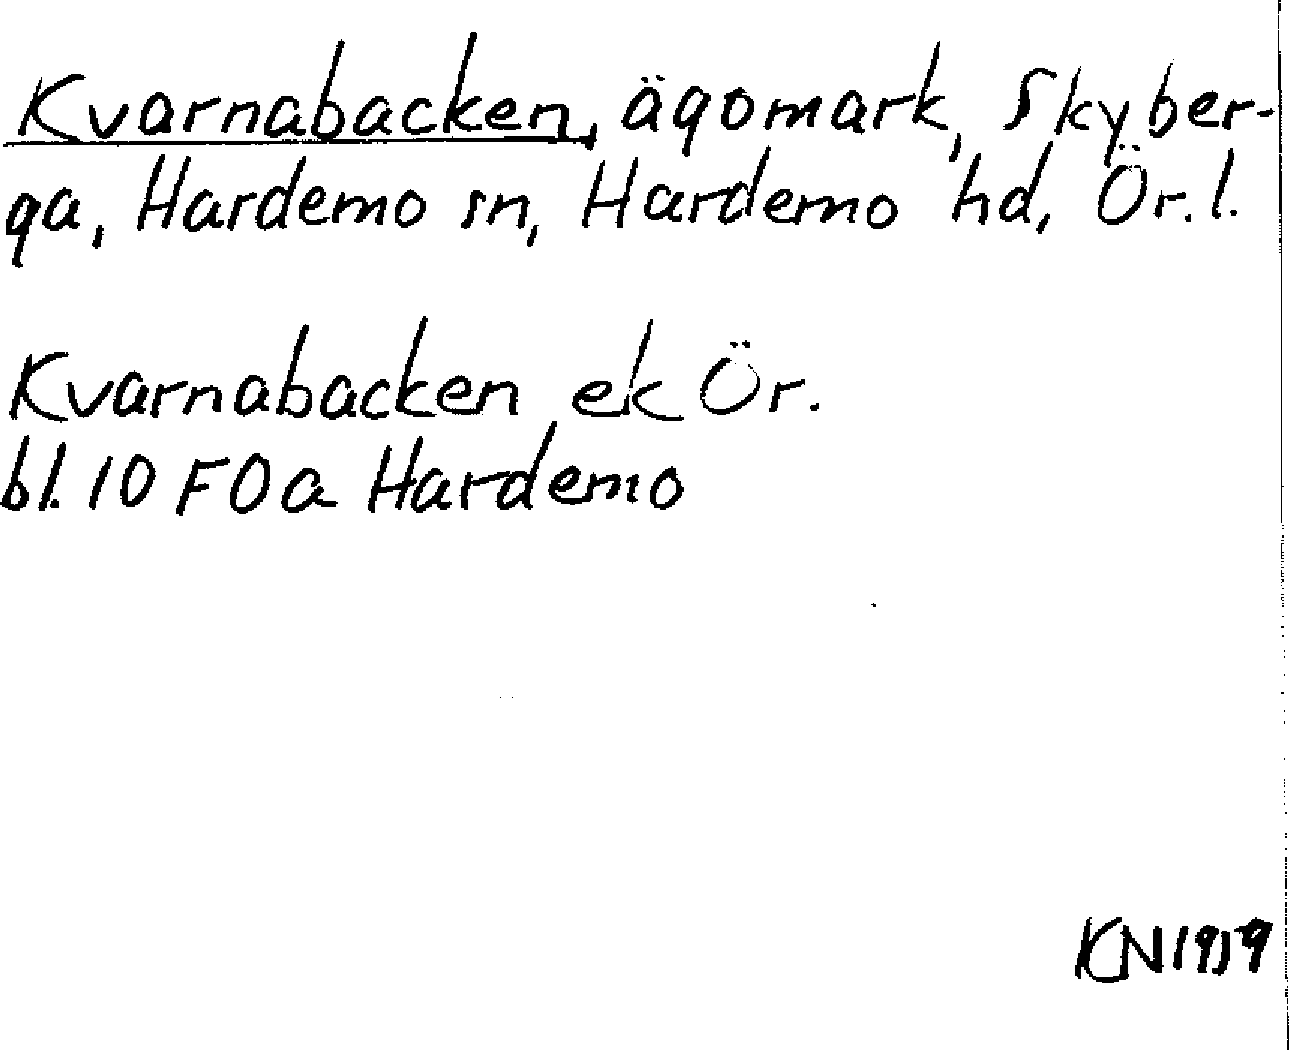 Kvarnabacken, ägomark, Skyber-
ga, Hardemo sn, Hardemo hd, Ör. l.
Kvarnabacken ek Ör.
bl. 10 FOa Hardemo
KN